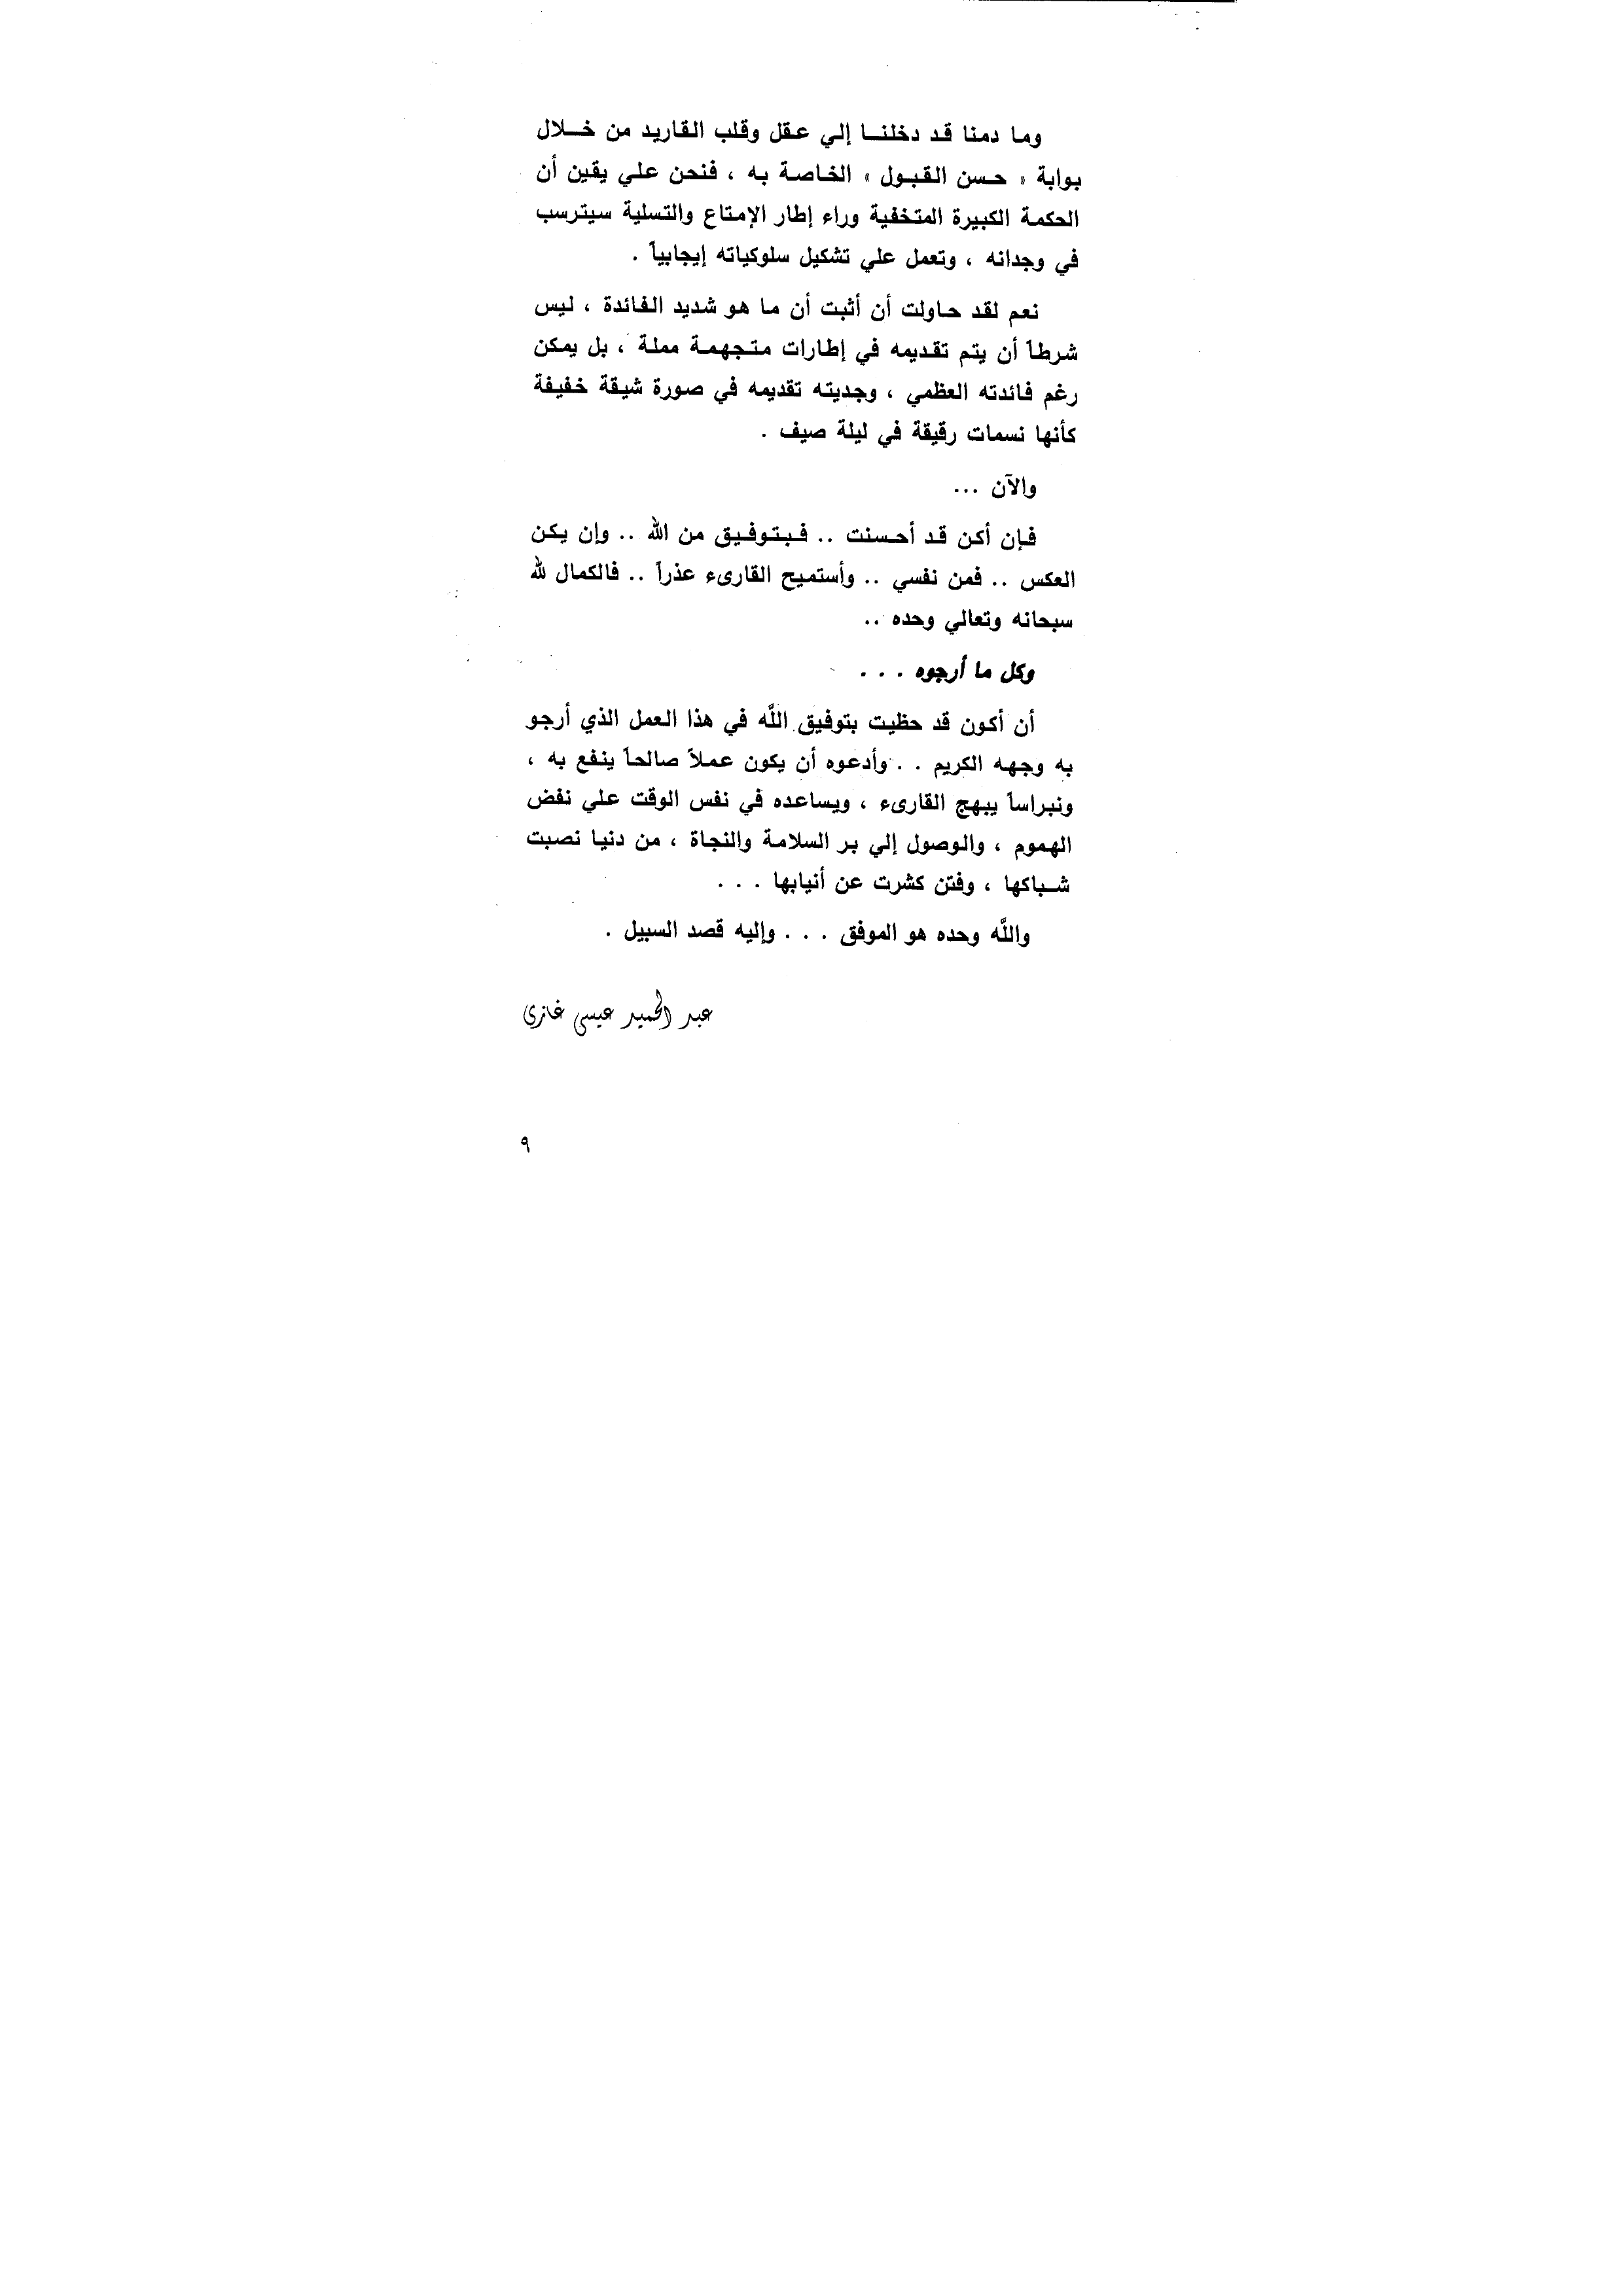 وما دمنا قد دخلنا إلي عقل وقلب القاريد من خلال
بوابة « حسن القبول » الخاصة به ، فنحن علي يقين أن
الحكمة الكبيرة المتخفية وراء إطار الإمتاع والتسلية سيترسب
في وجدانه ، وتعمل علي تشكيل سلوكياته إيجابياً .
نعم لقد حاولت أن أثبت أن ما هو شديد الفائدة ، ليس
شرطاً أن يتم تقديمه في إطارات متجهمة مملة ، بل يمكن
رغم فائدته العظمي ، وجديته تقديمه في صورة شيقة خفيفة
كأنها نسمات رقيقة في ليلة صيف .
والآن ...
فإن أكن قد أحسنت .. فبتوفيق من الله .. وإن يكن
العكس .. فمن نفسي .. وأستميح القارىء عذراً .. فالكمال لله
سبحانه وتعالي وحده ..
وكل ما أرجوه . . .
أن أكون قد حظيت بتوفيق اللَّه في هذا العمل الذي أرجو
به وجهه الكريم . . وأدعوه أن يكون عملاً صالحاً ينفع به ،
ونبراساً يبهج القارىء ، ويساعده في نفس الوقت علي نفض
الهموم ، والوصول إلي بر السلامة والنجاة ، من دنيا نصبت
شباكها ، وفتن كشرت عن أنيابها . . .
واللَّه وحده هو الموفق . . . وإليه قصد السبيل .
عبد الحميد عيسى غازى
٩